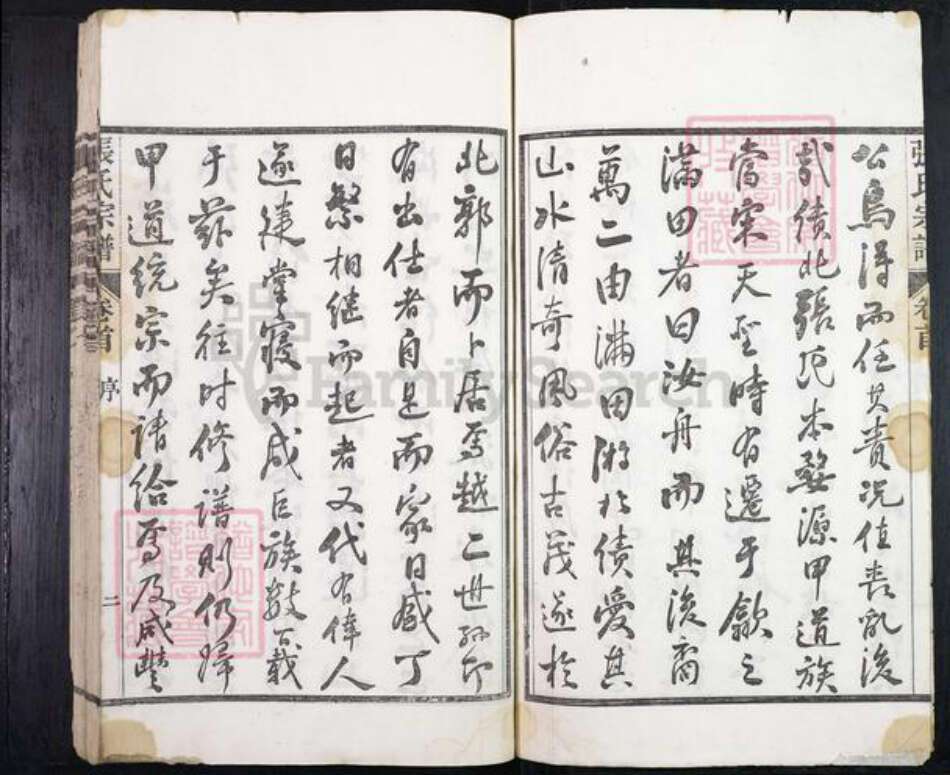 張氏宗譜 卷首
公烏得而任其責況值喪亂後
哉績北張氏本婺源甲道族
當宋天聖時有遷于歙之
滿田者曰汝舟而其後裔
萬二由滿田游於績愛其
山水清奇風俗古茂遂於
北郭而卜居焉越二世孫即
有出仕者自是而家日盛丁
日繁相繼而起者又代有偉人
遂建堂寢而成巨族數百載
于茲矣往時修譜則仍歸
甲道統宗而請給焉及咸豐
張氏宗譜 卷首 序 二
FamilySearch